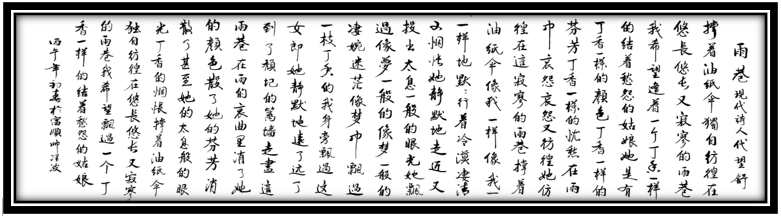 雨巷 现代诗人代望舒
撑着油纸伞独自彷徨在
悠长悠长又寂寥的雨巷
我希望逢着一个丁香一样
的结着愁怨的姑娘她是有
丁香一样的顏色丁香一样的
芬芳丁香一样的忧愁在雨
中哀怨哀怨又彷徨她彷
徨在這寂寥的雨巷撑着
油纸伞像我一样像我一
一样地默默行着冷漠凄清
又惆怅她静默地走近又
投出太息一般的眼光她飄
過像夢一般的像夢一般的
凄婉迷茫像梦中飄過
一枝丁香的我身旁飄過這
女郎她静默地遠了远了
到了頹圮的篱墙走盡這
雨巷在雨的哀曲里消了她
的顏色散了她的芬芳消
散了甚至她的太息般的眼
光丁香的惆怅撑着油纸伞
独自彷徨在悠长悠长又寂寥
的雨巷我希望飄過一个丁
香一样的结着愁怨的姑娘
丙午年初夏於富顺